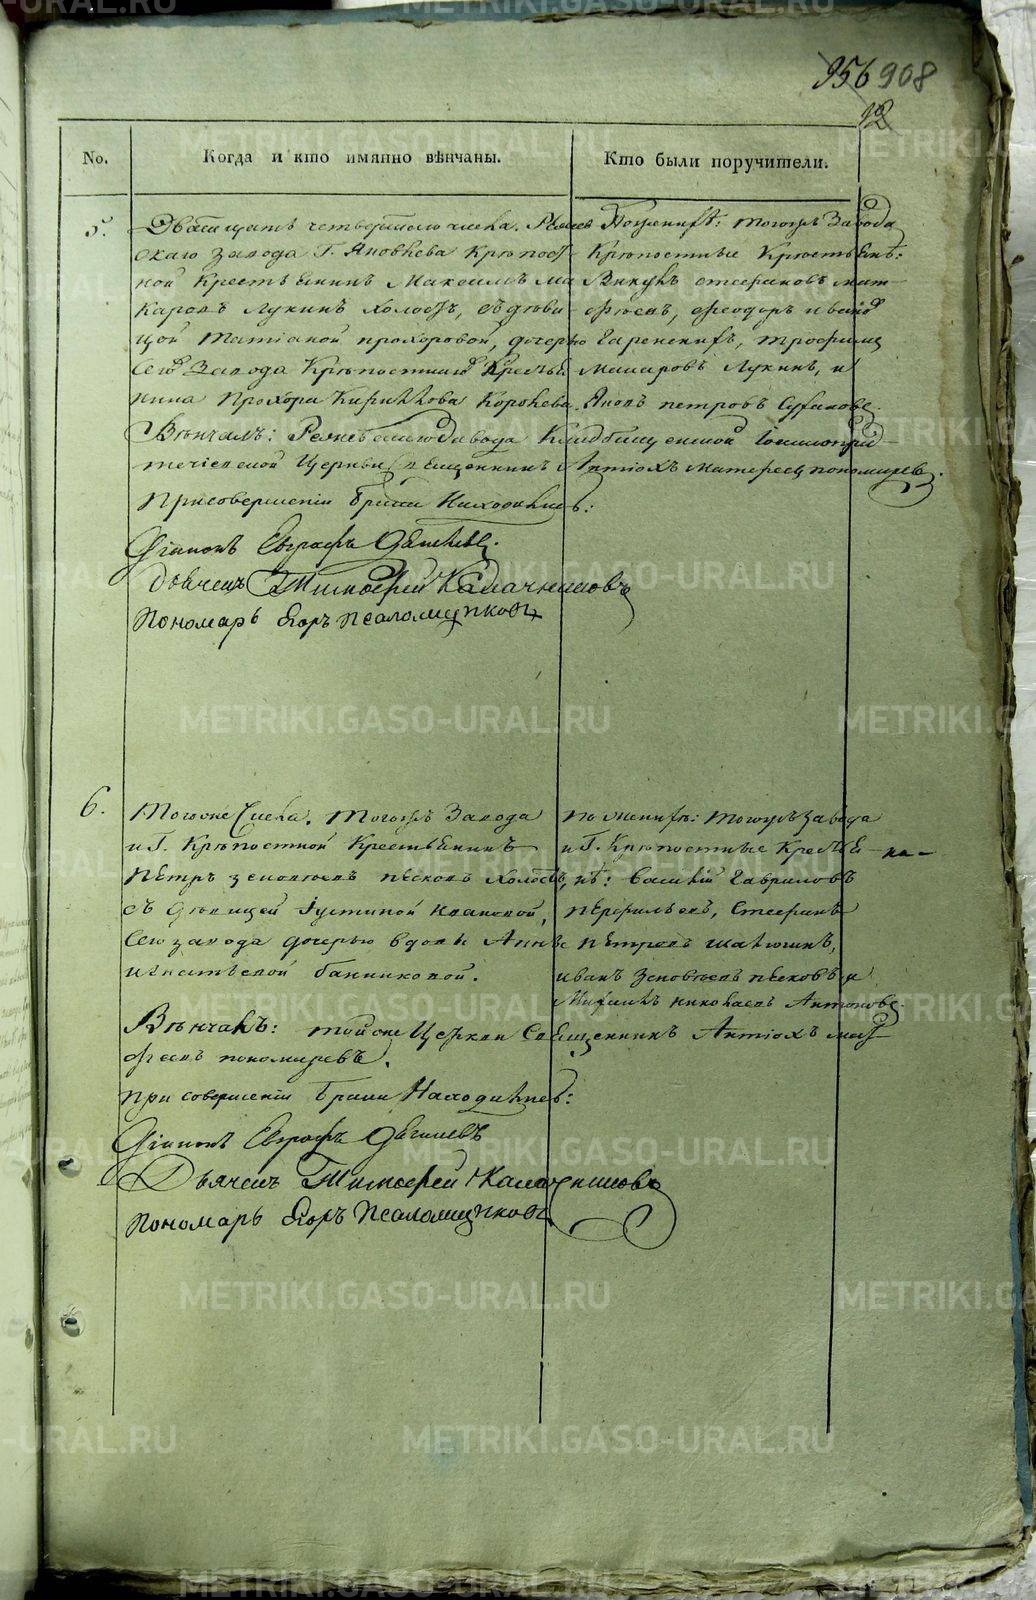 956 908
12
No.
Когда и кто имянно вѣнчаны.
Кто были поручители.
5.
Дватцать четвертаго числа. Режев
скаго завода Г. Яковлева Крѣпост
ной Крестьянинъ Максимъ ма
каровъ Лукинъ холостъ, съ дѣви
цой Татіаной прохоровой, дочерью
Сего Завода Крѣпостнаго Крестья
нина Прохора Кирилова
По женихѣ: тогожъ Завода
Крѣпостные Крестьяне:
Викулъ стефановъ мат
фѣевъ, феодоръ ивановъ
Трофимъ
макаровъ Лукинъ, и
Яковъ петровъ
Вѣнчалъ: Режевскаго Завода Кладбищенской Іоаннопред
течіевской Церкви Священникъ Антіохъ матфеевъ пономаревъ.
При совершеніи брака находились:
Діаконъ Евграфъ
Дьячекъ Тимофей Калачниковъ
Пономарь Егоръ Псаломщиковъ
6.
Тогоже Числа. Тогожъ Завода
и Г. Крѣпостной Крестьянинъ
Пётръ зеновьевъ пѣсковъ Холостъ,
съ дѣвицей Іустиной ивановой,
Сего завода дочерью вдовы Анны
игнатьевой банниковой.
по женихѣ: тогожъ завода
и Г. Крѣпостные Крестья
не: Василій Гавриловъ
пѣрфильевъ, Стефанъ
пѣтровъ
иванъ Зеновьевъ пѣсковъ и
николаевъ Антоновъ.
Вѣнчалъ: тойже Церкви Священникъ Антіохъ мат
фѣевъ пономаревъ.
при совершеніи брака Находились:
Діаконъ Евграфъ
Дьячекъ Тимофей Калачниковъ
Пономарь Егоръ Псаломщиковъ
METRIKI.GASO-URAL.RU